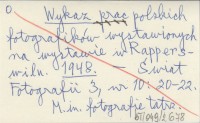 O
Wykaz prac polskich
fotografików wystawionych
na wystawie w Rappers-
wilu. 1948. — Świat
Fotografii 3, nr 10: 20-22.
M. in. fotografie tatr.